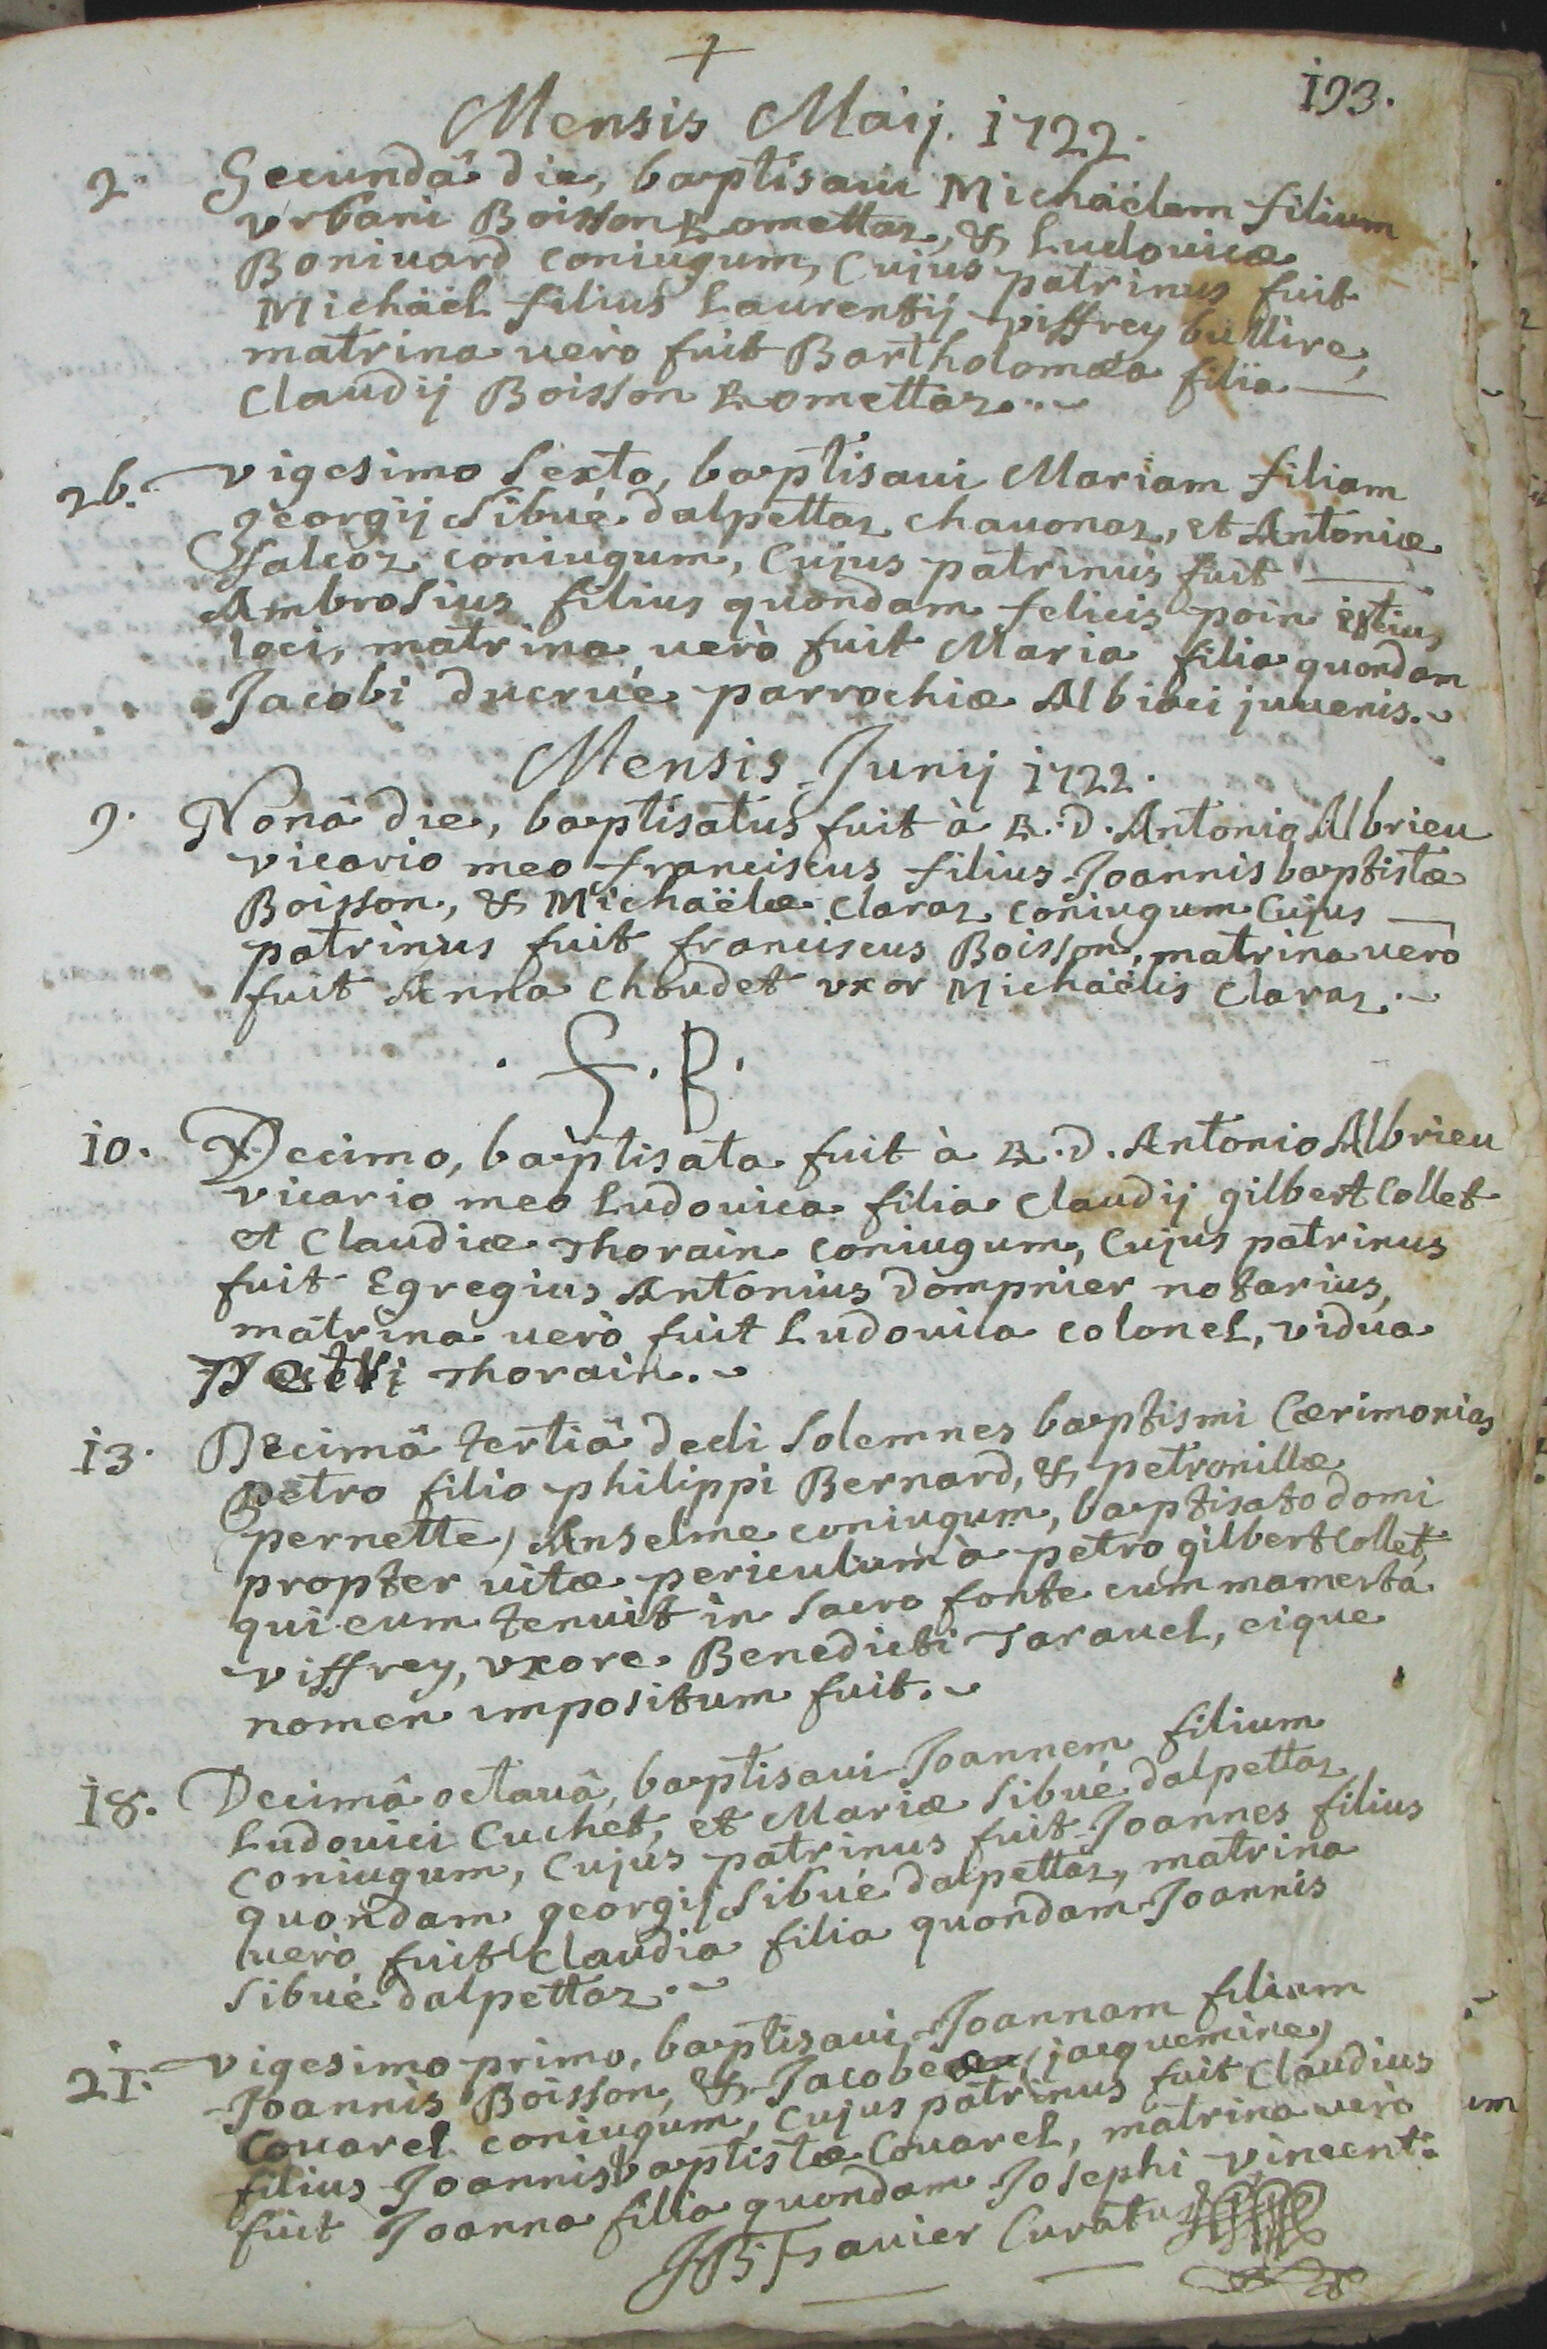 193.
Mensis Maij. 1722.
2. Secundâ die, baptisaui Michäelem filium
vrbani Boisson Romettaz, & Ludouicæ
Boniuard coniugum, Cujus patrinus fuit
Michäel filius Laurentij viffrey bullire,
matrina uerò fuit Bartholomæa filia
Claudij Boisson Romettaz.
26. vigesimo Sexto, baptisaui Mariam filiam
georgij Sibué dalpettaz chauonaz, et Antoniæ
falcoz coniugum, Cujus patrinus fuit
Ambrosius filius quondam felicis poin istius
loci, matrina uerò fuit Maria filia quondam
Jacobi ducrué parrochiæ Albiaci juuenis.
Mensis Junij 1722.
9. Nonâ die, baptisatus fuit à R.D. Antonio Albrieu
vicario meo franciscus filius Joannis baptistæ
Boisson, & Michaëlæ Claraz coniugum Cujus
patrinus fuit franciscus Boisson, matrina uerò
fuit Anna Choudet vxor Michäelis Claraz.
. S. B.
10. Decimo, baptisata fuit à R.D. Antonio Albrieu
vicario meo Ludouica filia Claudij gilbert Collet
et Claudiæ Thorain coniugum, Cujus patrinus
fuit Egregius Antonius dompnier notarius,
matrina uerò fuit Ludouica Colonel, vidua
Thorain.
13. Decimâ tertiâ dedi Solemnes baptismi Cærimonias
Petro filio philippi Bernard, & petronillæ
(pernette) Anselme coniugum, baptisato domi
propter uitæ periculum à petro gilbert Collet,
qui eum tenuit in Sacro fonte cum mamertâ
viffrey, vxore Benedicti Tarauel, eique
nomen impositum fuit.
18. Decimâ octauâ, baptisaui Joannem filium
Ludouici Cuchet, et Mariæ Sibué dalpettaz
coniugum, Cujus patrinus fuit Joannes filius
quondam georgij Sibué dalpettaz, matrina
uerò fuit Claudia filia quondam Joannis
Sibué dalpettaz.
21. vigesimo primo, baptisaui Joannam filiam
Joannis Boisson, & Jacobeæ (jacquemine)
Couarel coniugum, Cujus patrinus fuit Claudius
filius Joannis baptistæ Couarel, matrina uerò
fuit Joanna filia quondam Josephi vincent.
Curatus